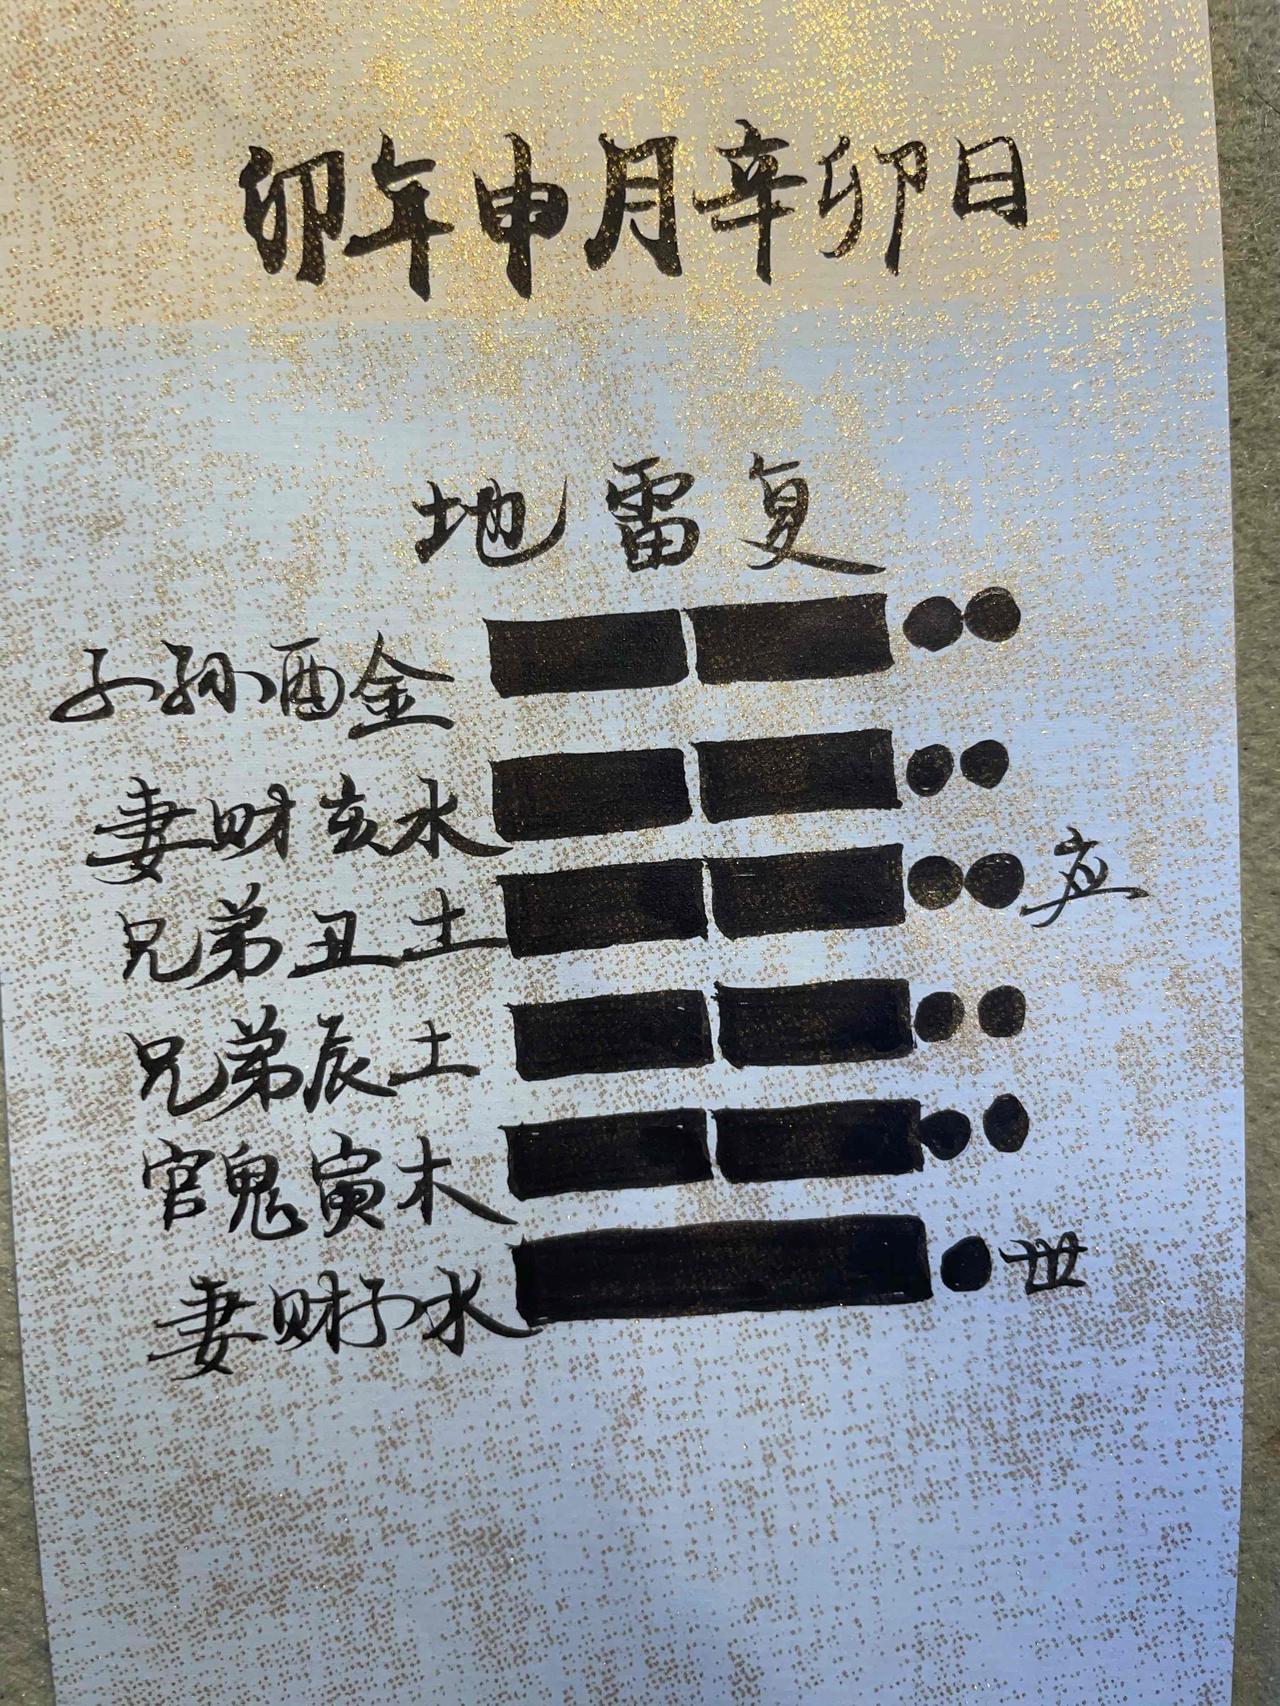 卯年申月辛卯日
地雷复
子孙酉金
妻财亥水
兄弟丑土 应
兄弟辰土
官鬼寅木
妻财子水 世